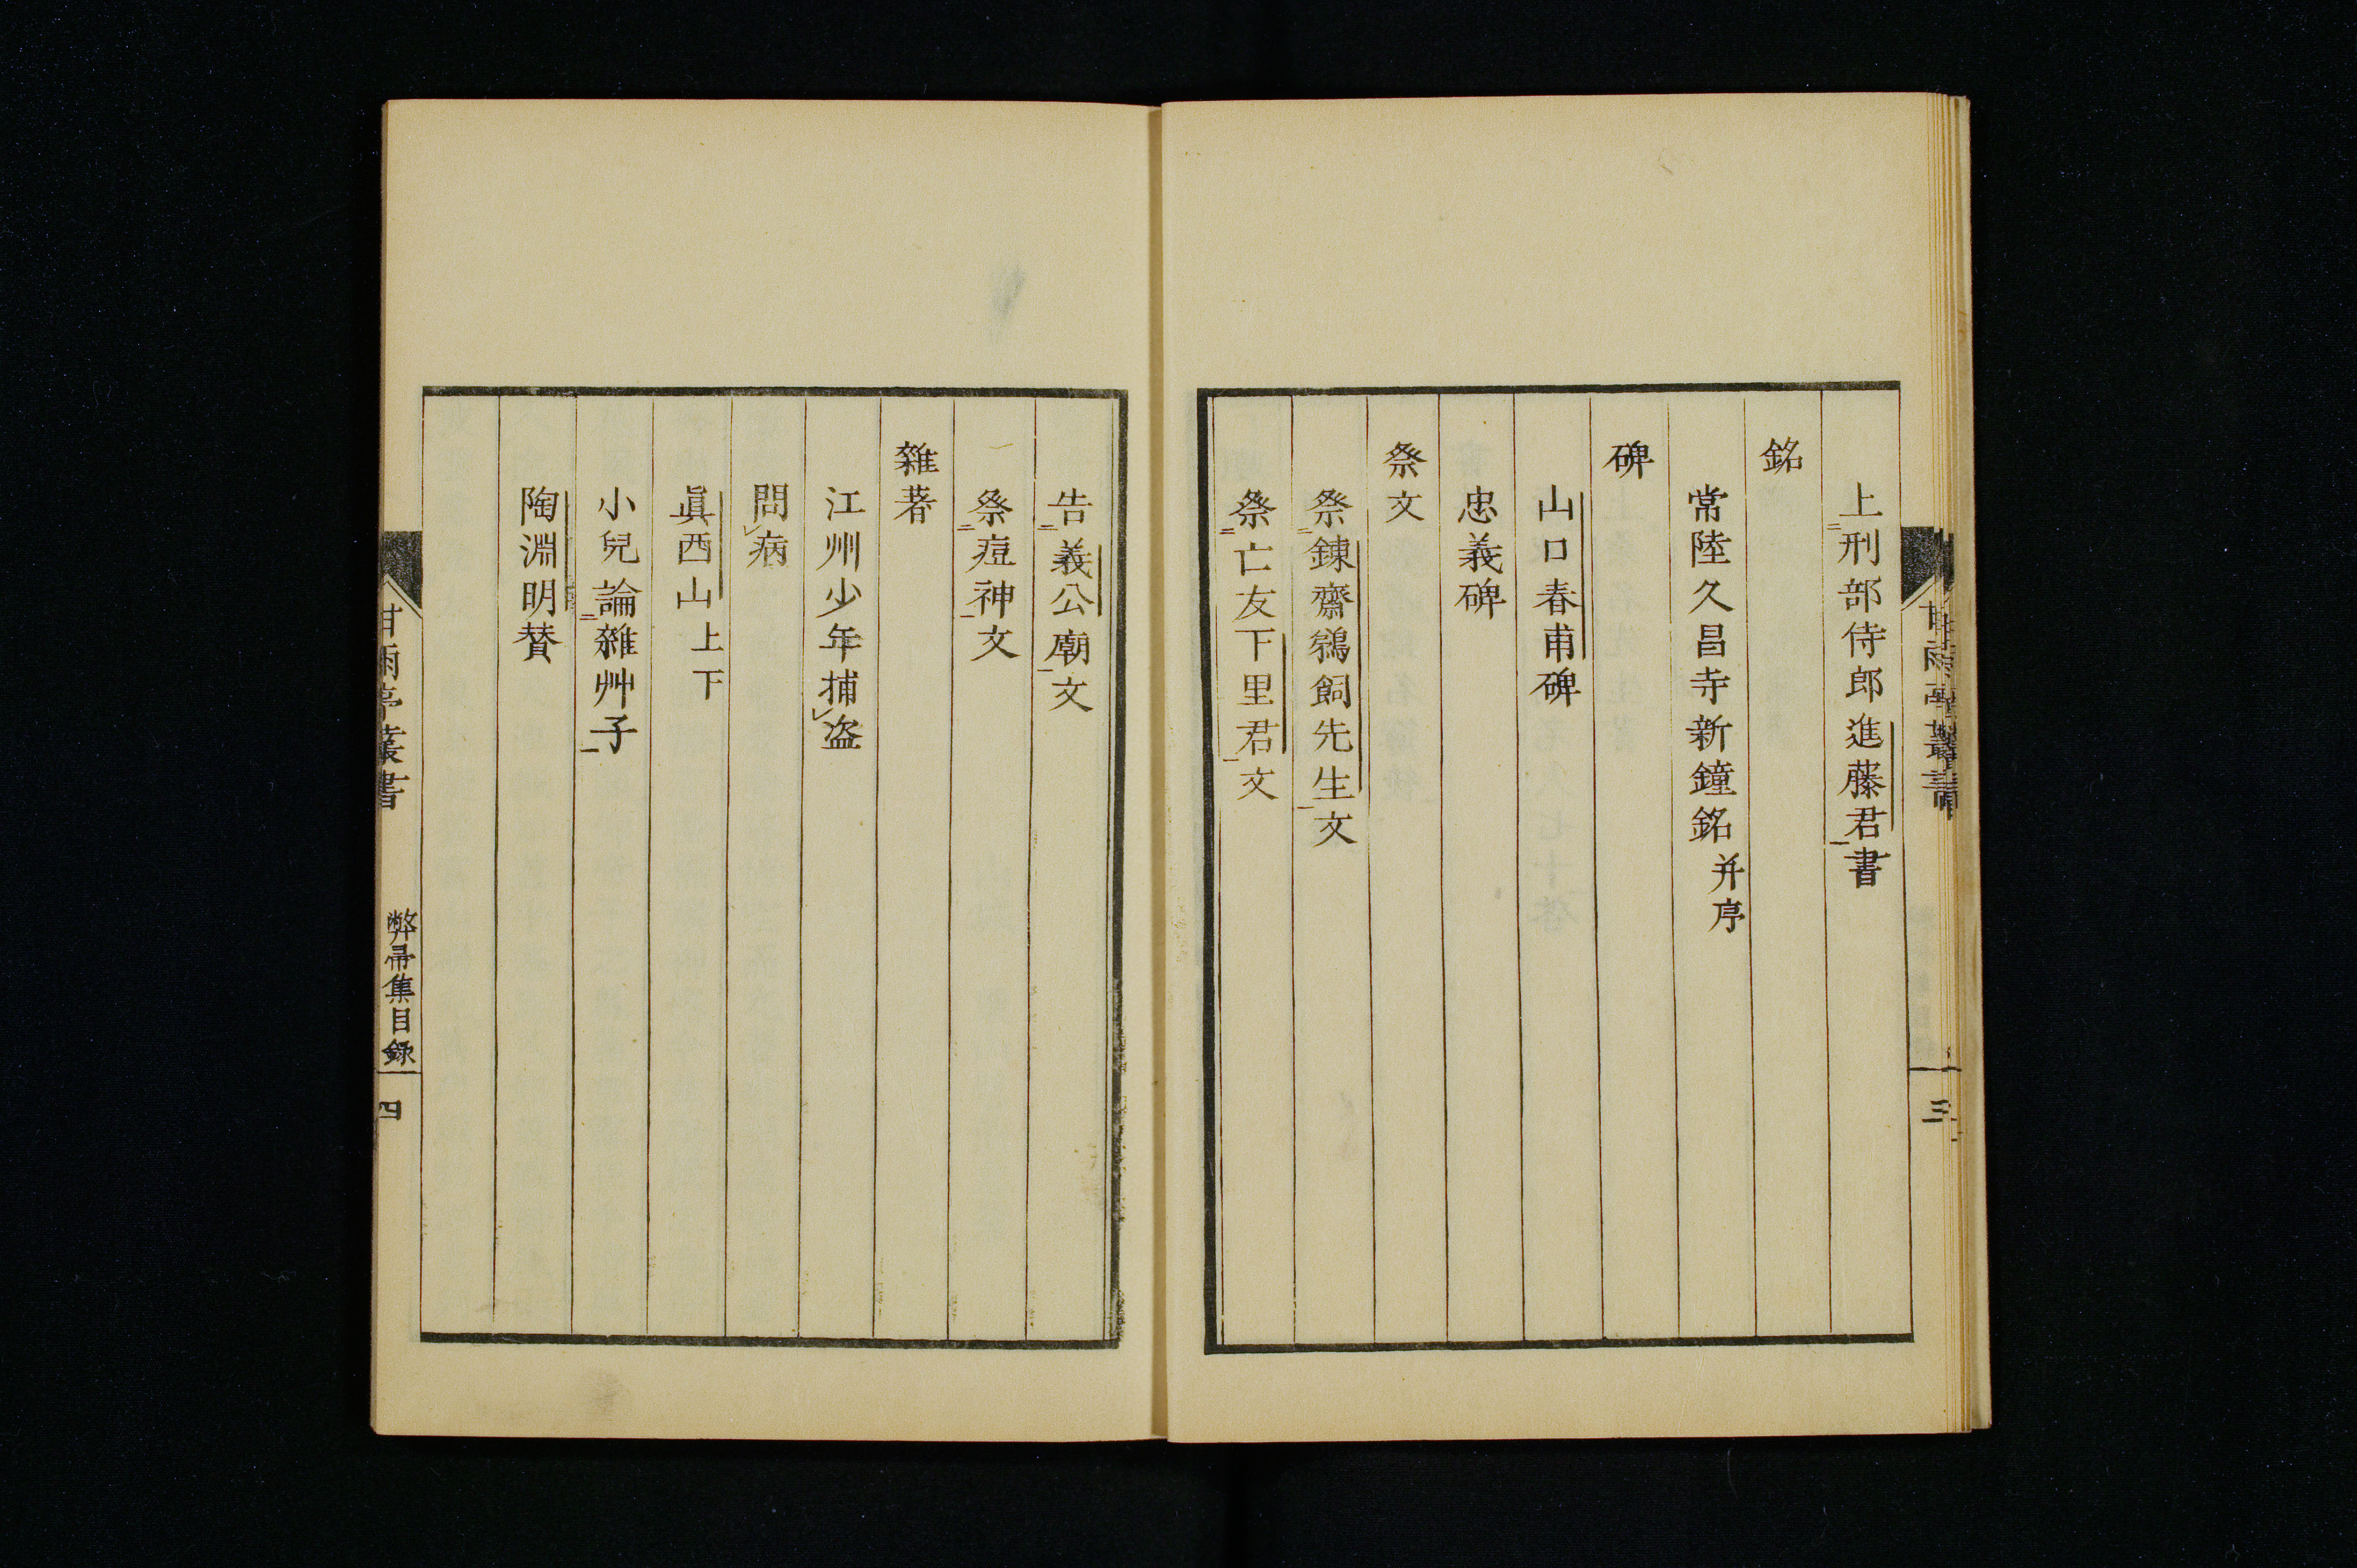 上刑部侍郎進藤君書
銘
常陸久昌寺新鐘銘并序
碑
山口春甫碑
忠義碑
祭文
祭錬齋鵜飼先生文
祭亡友下里君文
甘雨亭叢書
三
告義公廟文
祭痘神文
雜著
江州少年捕盜
問病
眞西山上下
小兒論雜艸子
陶淵明賛
甘雨亭叢書
弊帚集目録
四